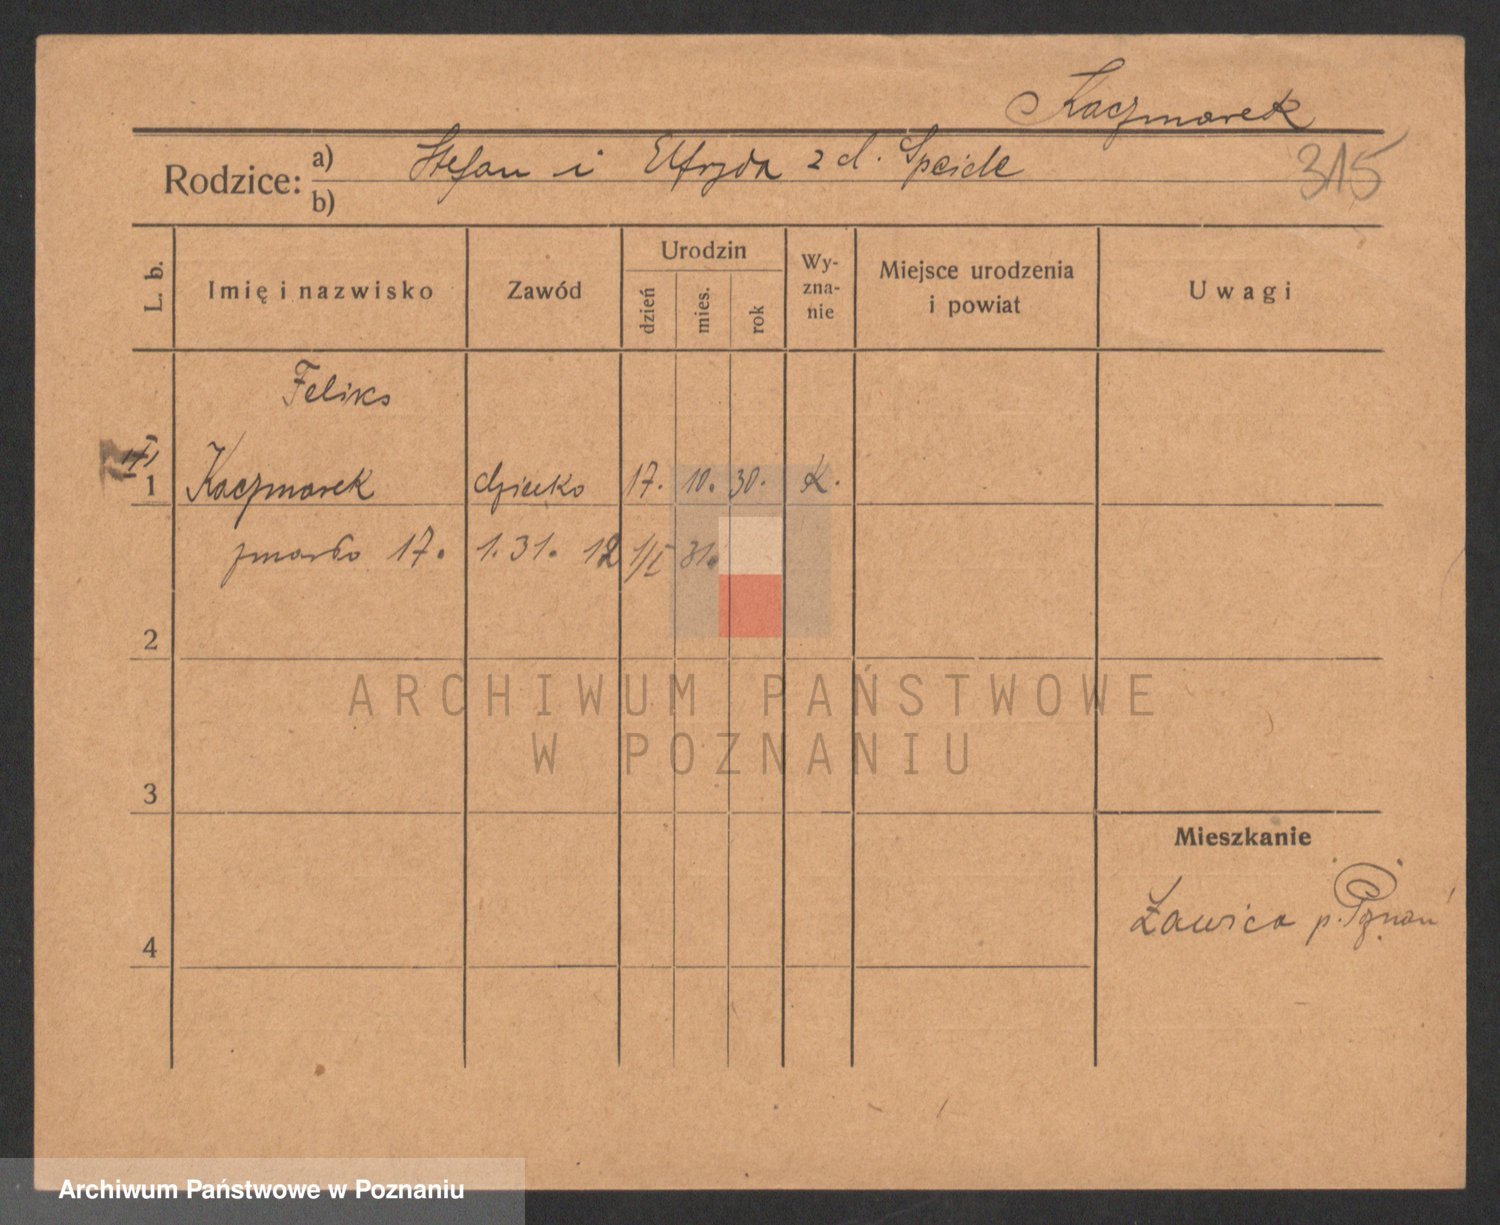 Kaczmarek
Rodzice:
a) Stefan i Elfryda z d. Speide
b)
315
L. b.
Imię i nazwisko
Zawód
Urodzin
dzień
mies.
rok
Wy-
zna-
nie
Miejsce urodzenia
i powiat
Uwagi
Feliks
1 Kaczmarek dziecko 17. 10. 30. K.
zmarło 17. 1. 31. 12 1/I 31.
2
3
4
Mieszkanie
Ławica p. Poznań
ARCHIWUM PAŃSTWOWE
W POZNANIU
Archiwum Państwowe w Poznaniu